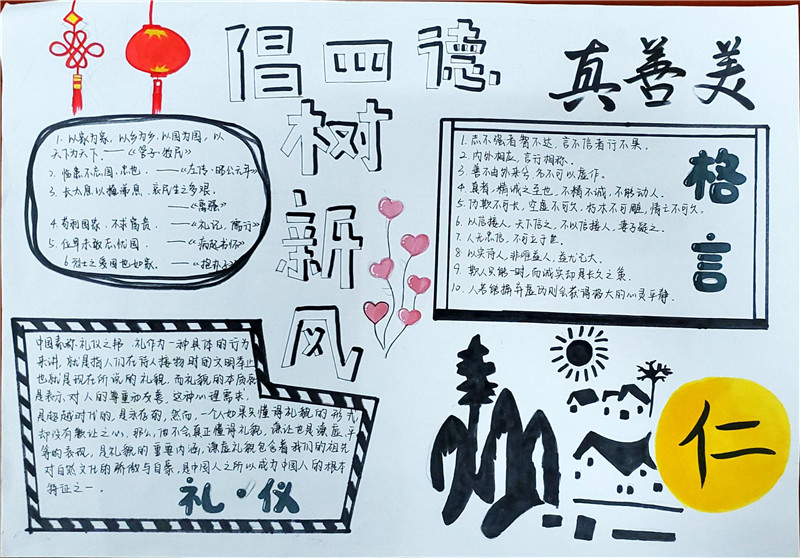 倡四德
树新风
真善美
1. 以家为家，以乡为乡，以国为国，以
天下为天下。——《管子·牧民》
2. 临患不忘国，忠也。——《左传·昭公元年》
3. 长太息以掩涕兮，哀民生之多艰。
——《离骚》
4. 苟利国家，不求富贵。——《礼记，儒行》
5. 位卑未敢忘忧国。——《病起书怀》
6. 烈士之爱国也如家。——《抱朴子》
格言
1. 志不强者智不达，言不信者行不果。
2. 内外相应，言行相称。
3. 善不由外来兮，名不可以虚作。
4. 真者，精诚之至也，不精不诚，不能动人。
5. 伪欺不可长，空虚不可久，朽木不可雕，情亡不可久。
6. 以信接人，天下信之，不以信接人，妻子疑之。
7. 人无忠信，不可立于世。
8. 以实待人，非唯益人，益己尤大。
9. 欺人只能一时，而诚实却是长久之策。
10. 人若能摒弃虚伪则会获得极大的心灵平静。
中国素称礼仪之邦，礼作为一种具体的行为
来讲，就是指人们在待人接物时的文明举止
也就是现在所说的礼貌。而礼貌的本质就
是表示对人的尊重和友善，这种心理需求，
是超越时代的，是永存的。然而，一个人如果只懂得礼貌的形式
却没有谦让之心，那么，他不会真正懂得礼貌，谦让也是谦虚、平
等的表现，是礼貌的重要内涵，谦虚礼貌包含着我们的祖先
对自然文化的骄傲与自豪，是中国人之所以成为中国人的根本
特征之一。
礼·仪
仁